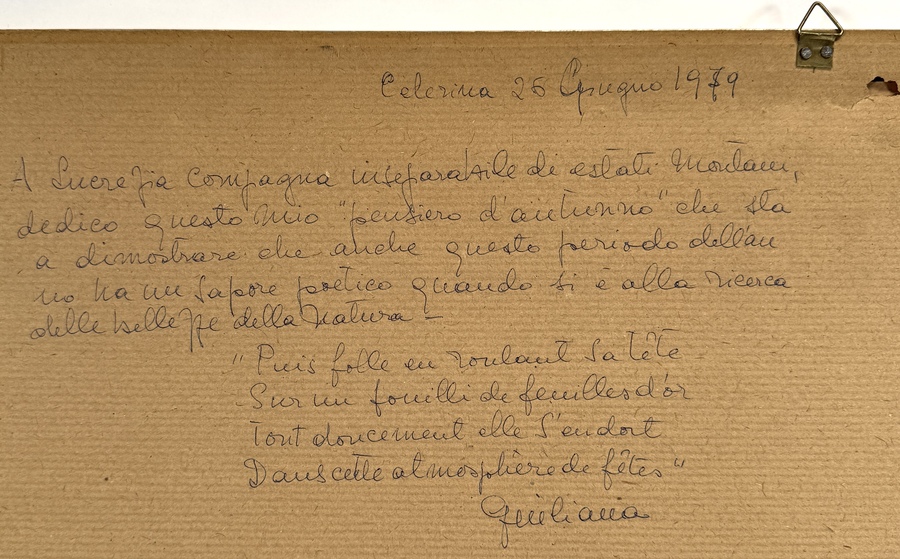 Celerina 25 Giugno 1979
A Lucrezia compagna inseparabile di estati montani,
dedico questo mio "pensiero d'autunno" che sta
a dimostrare che anche questo periodo dell'an
no ha un sapore poetico quando si è alla ricerca
delle bellezze della natura -
"Puis folle en roulant sa tête
Sur un fouilli de feuilles d'or
Tout doucement elle s'endort
Dans cette atmosphère de fêtes"
Giuliana